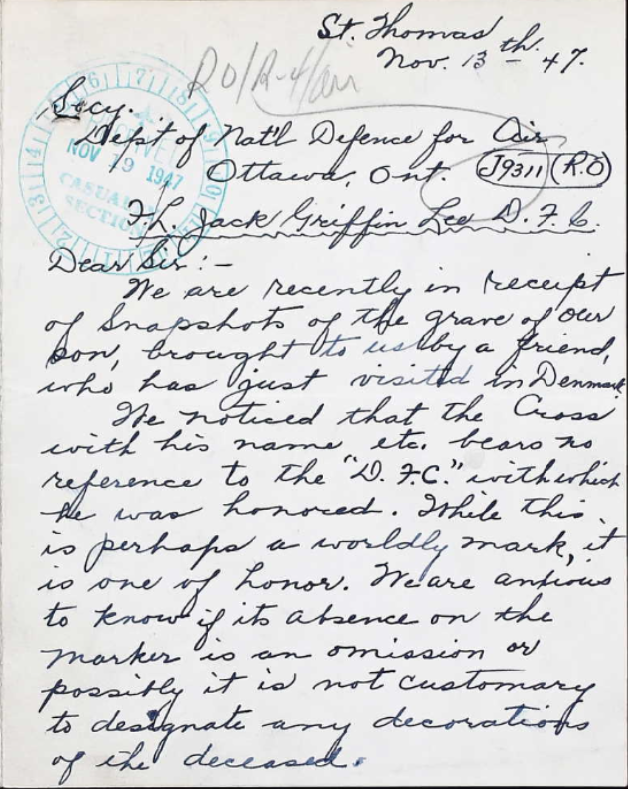 St. Thomas
Nov. 13th - 47.
Secy.
Dep't of Nat'l Defence for Air
Ottawa, Ont. J9311 (R.O)
F.L. Jack Griffin Lee D.F.C.
Dear Sir:-
We are recently in receipt
of Snapshots of the grave of our
son, brought to us by a friend,
who has just visited in Denmark.
We noticed that the Cross
with his name etc. bears no
reference to the "D.F.C." with which
he was honored. While this
is perhaps a worldly mark, it
is one of honor. We are anxious
to know if its absence on the
marker is an omission or
possibly it is not customary
to designate any decorations
of the deceased.
NOV 19 1947
CASUALTY
SECTION